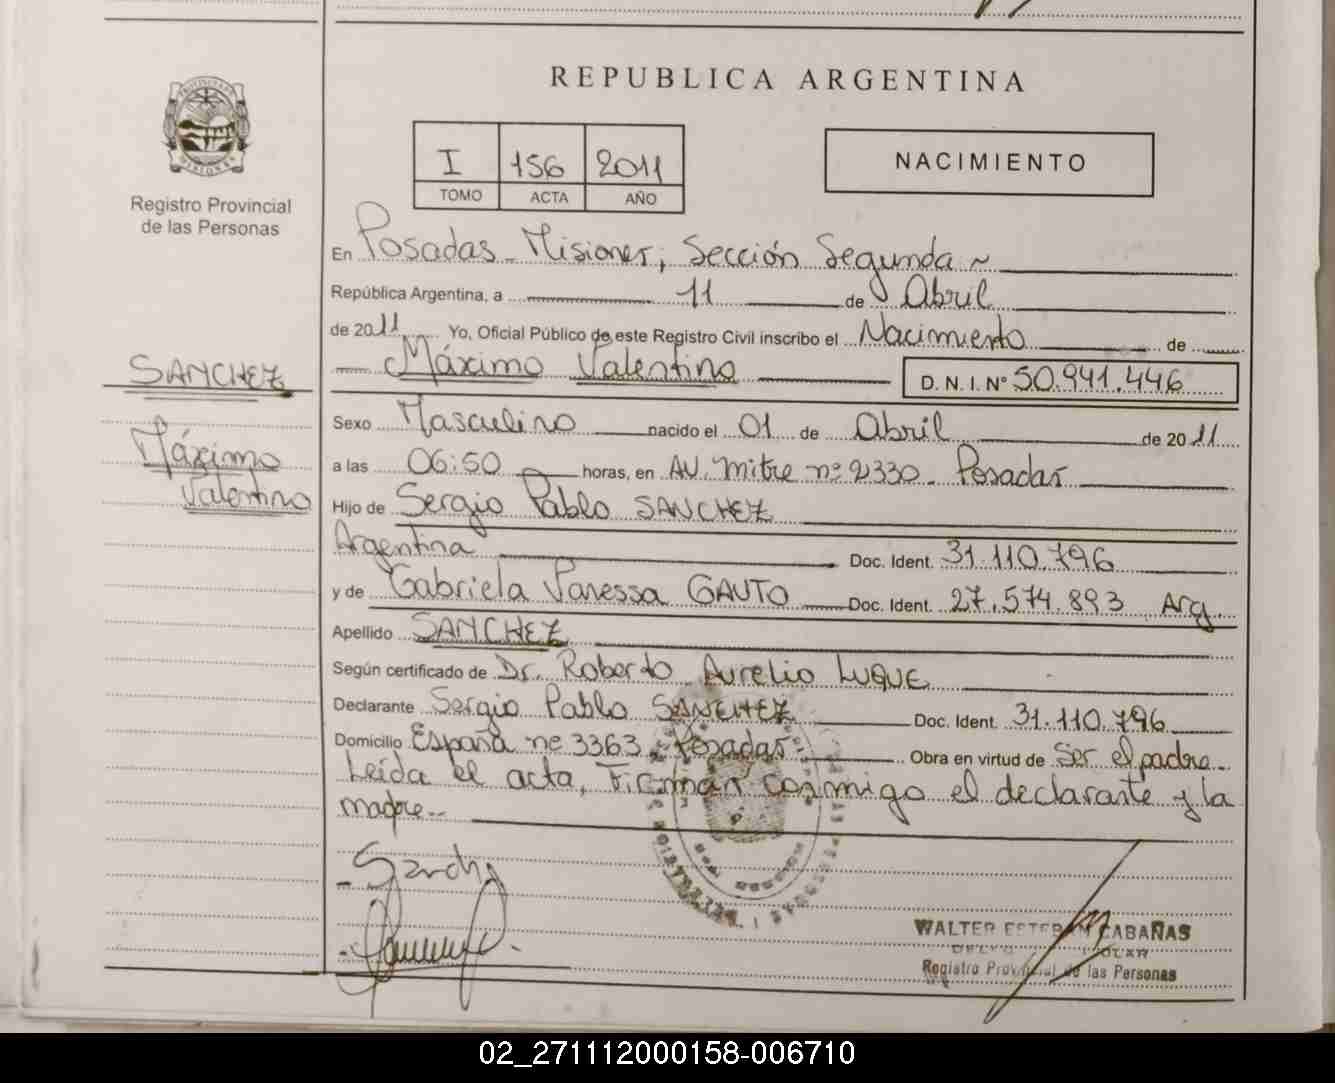 REPUBLICA ARGENTINA
I 156 2011
TOMO ACTA AÑO
NACIMIENTO
PROVINCIA DE
MISIONES
Registro Provincial
de las Personas
En Posadas - Misiones, Sección Segunda ~
República Argentina, a 11 de Abril
de 2011 Yo, Oficial Público de este Registro Civil inscribo el Nacimiento de
Máximo Valentino D. N. I. Nº 50.941.446
SANCHEZ
Máximo
Valentino
Sexo Masculino nacido el 01 de Abril de 2011
a las 06:50 horas, en AV. Mitre nº 2330 - Posadas
Hijo de Sergio Pablo SANCHEZ
Argentina Doc. Ident. 31.110.796
y de Gabriela Vanessa GAUTO Doc. Ident. 27.574.893 Arg.
Apellido SANCHEZ
Según certificado de Dr. Roberto Aurelio LUQUE
Declarante Sergio Pablo SANCHEZ Doc. Ident. 31.110.796
Domicilio España nº 3363 - Posadas Obra en virtud de Ser el padre-
Leída el acta, Firman conmigo el declarante y la
madre.-
WALTER ESTEBAN CABAÑAS
Registro Provincial de las Personas
02_271112000158-006710